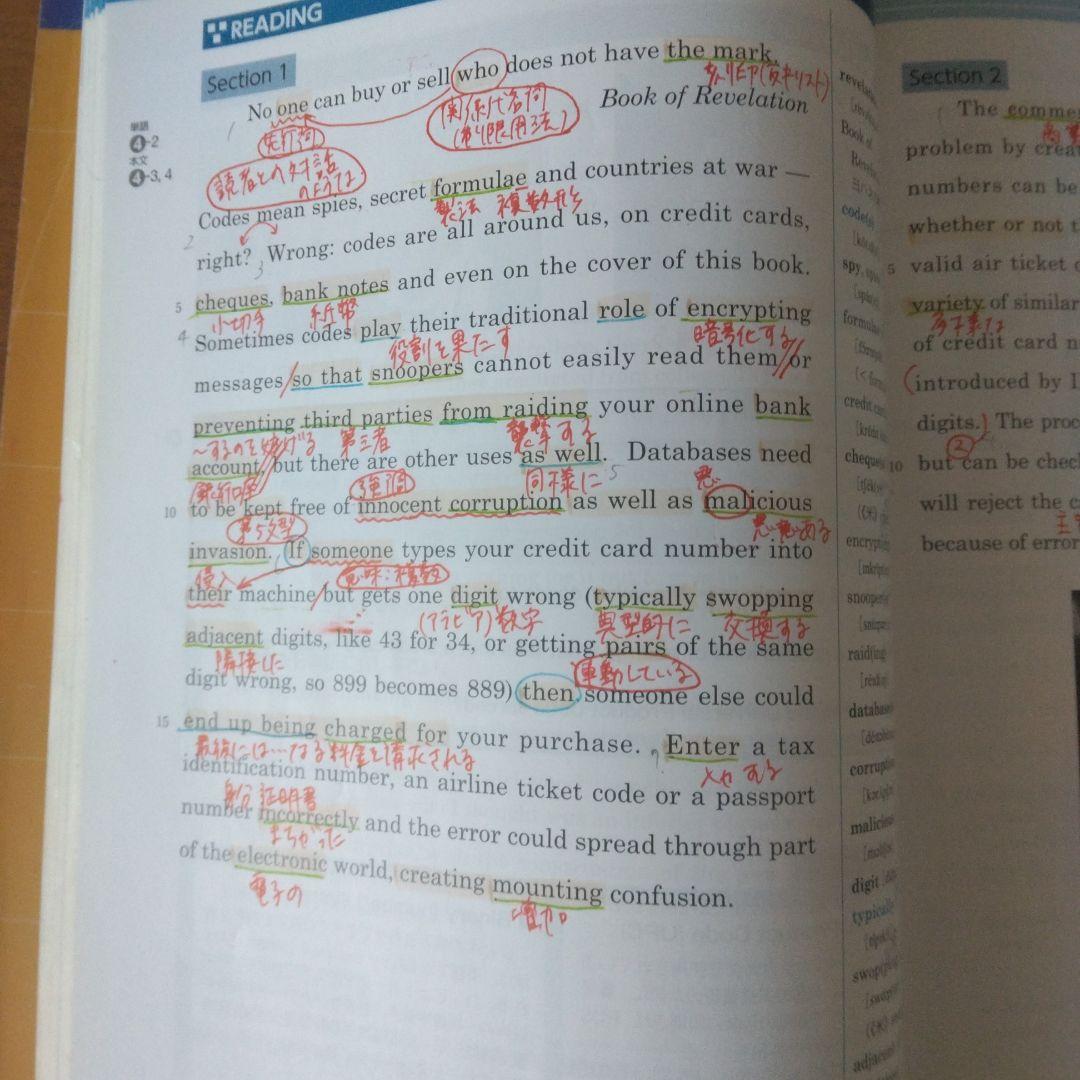 READING
Section 1
No one can buy or sell who does not have the mark.
(反キリスト)
Book of Revelation
関係代名詞
(制限用法)
先行詞
単語
4-2
本文
4-3, 4
読者との対話
のような
Codes mean spies, secret formulae and countries at war —
製法 複数形
right? Wrong: codes are all around us, on credit cards,
5 cheques, bank notes and even on the cover of this book.
小切手 紙幣
Sometimes codes play their traditional role of encrypting
役割を果たす 暗号化する
messages so that snoopers cannot easily read them or
preventing third parties from raiding your online bank
〜するのを妨げる 第三者 襲撃する
account, but there are other uses as well. Databases need
銀行口座 強調 同様に 悪
10 to be kept free of innocent corruption as well as malicious
第5文型 悪意ある
invasion. If someone types your credit card number into
侵入 意味:複数
their machine but gets one digit wrong (typically swopping
(アラビア)数字 典型的に 交換する
adjacent digits, like 43 for 34, or getting pairs of the same
隣接した 連動している
digit wrong, so 899 becomes 889) then someone else could
15 end up being charged for your purchase. Enter a tax
最後には…なる 料金を請求される 入力する
identification number, an airline ticket code or a passport
身分証明書
number incorrectly and the error could spread through part
まちがった
of the electronic world, creating mounting confusion.
電子の 増加
Section 2
The comme
problem by crea
numbers can be
whether or not t
5 valid air ticket
variety of similar
多才な
of credit card n
(introduced by I
digits.) The proc
2
10 but can be chec
will reject the c
because of error
revela
Book of
code(s)
spy
formula
credit car
cheque
encryp
snooper
raid(ing
databas
corrupti
malicio
digit
typically
swop(p
adjacen